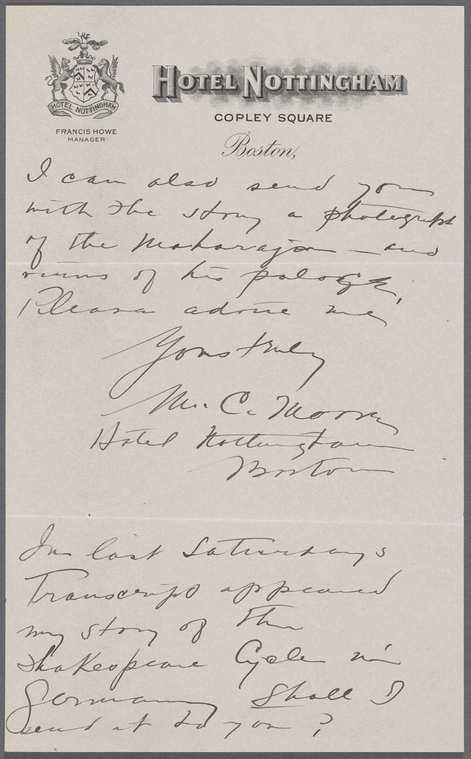 HOTEL NOTTINGHAM
HOTEL NOTTINGHAM
COPLEY SQUARE
FRANCIS HOWE
MANAGER
Boston,
I can also send you
with the story a photograph
of the Maharajah – and
ruins of his palace,
Please advise me,
Yours truly
M. C. Moore
Hotel Nottingham
Boston
In last Saturday's
Transcript appeared
my story of the
Shakespeare Cycle in
Germany Shall I
send it to you?